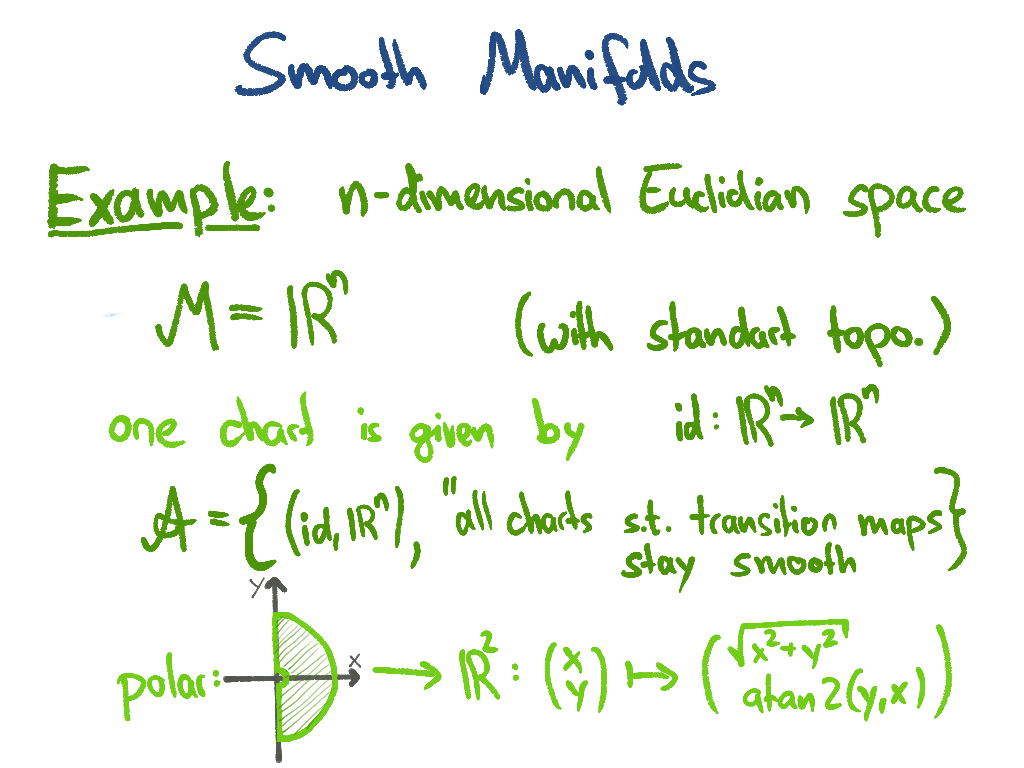 Smooth Manifolds
Example: n-dimensional Euclidian space
M = ℝⁿ (with standart topo.)
one chart is given by id: ℝⁿ → ℝⁿ
A = { (id, ℝⁿ), "all charts s.t. transition maps }
stay smooth
y
x
polar: → ℝ² : (x y) ↦ (√x²+y² atan2(y,x))